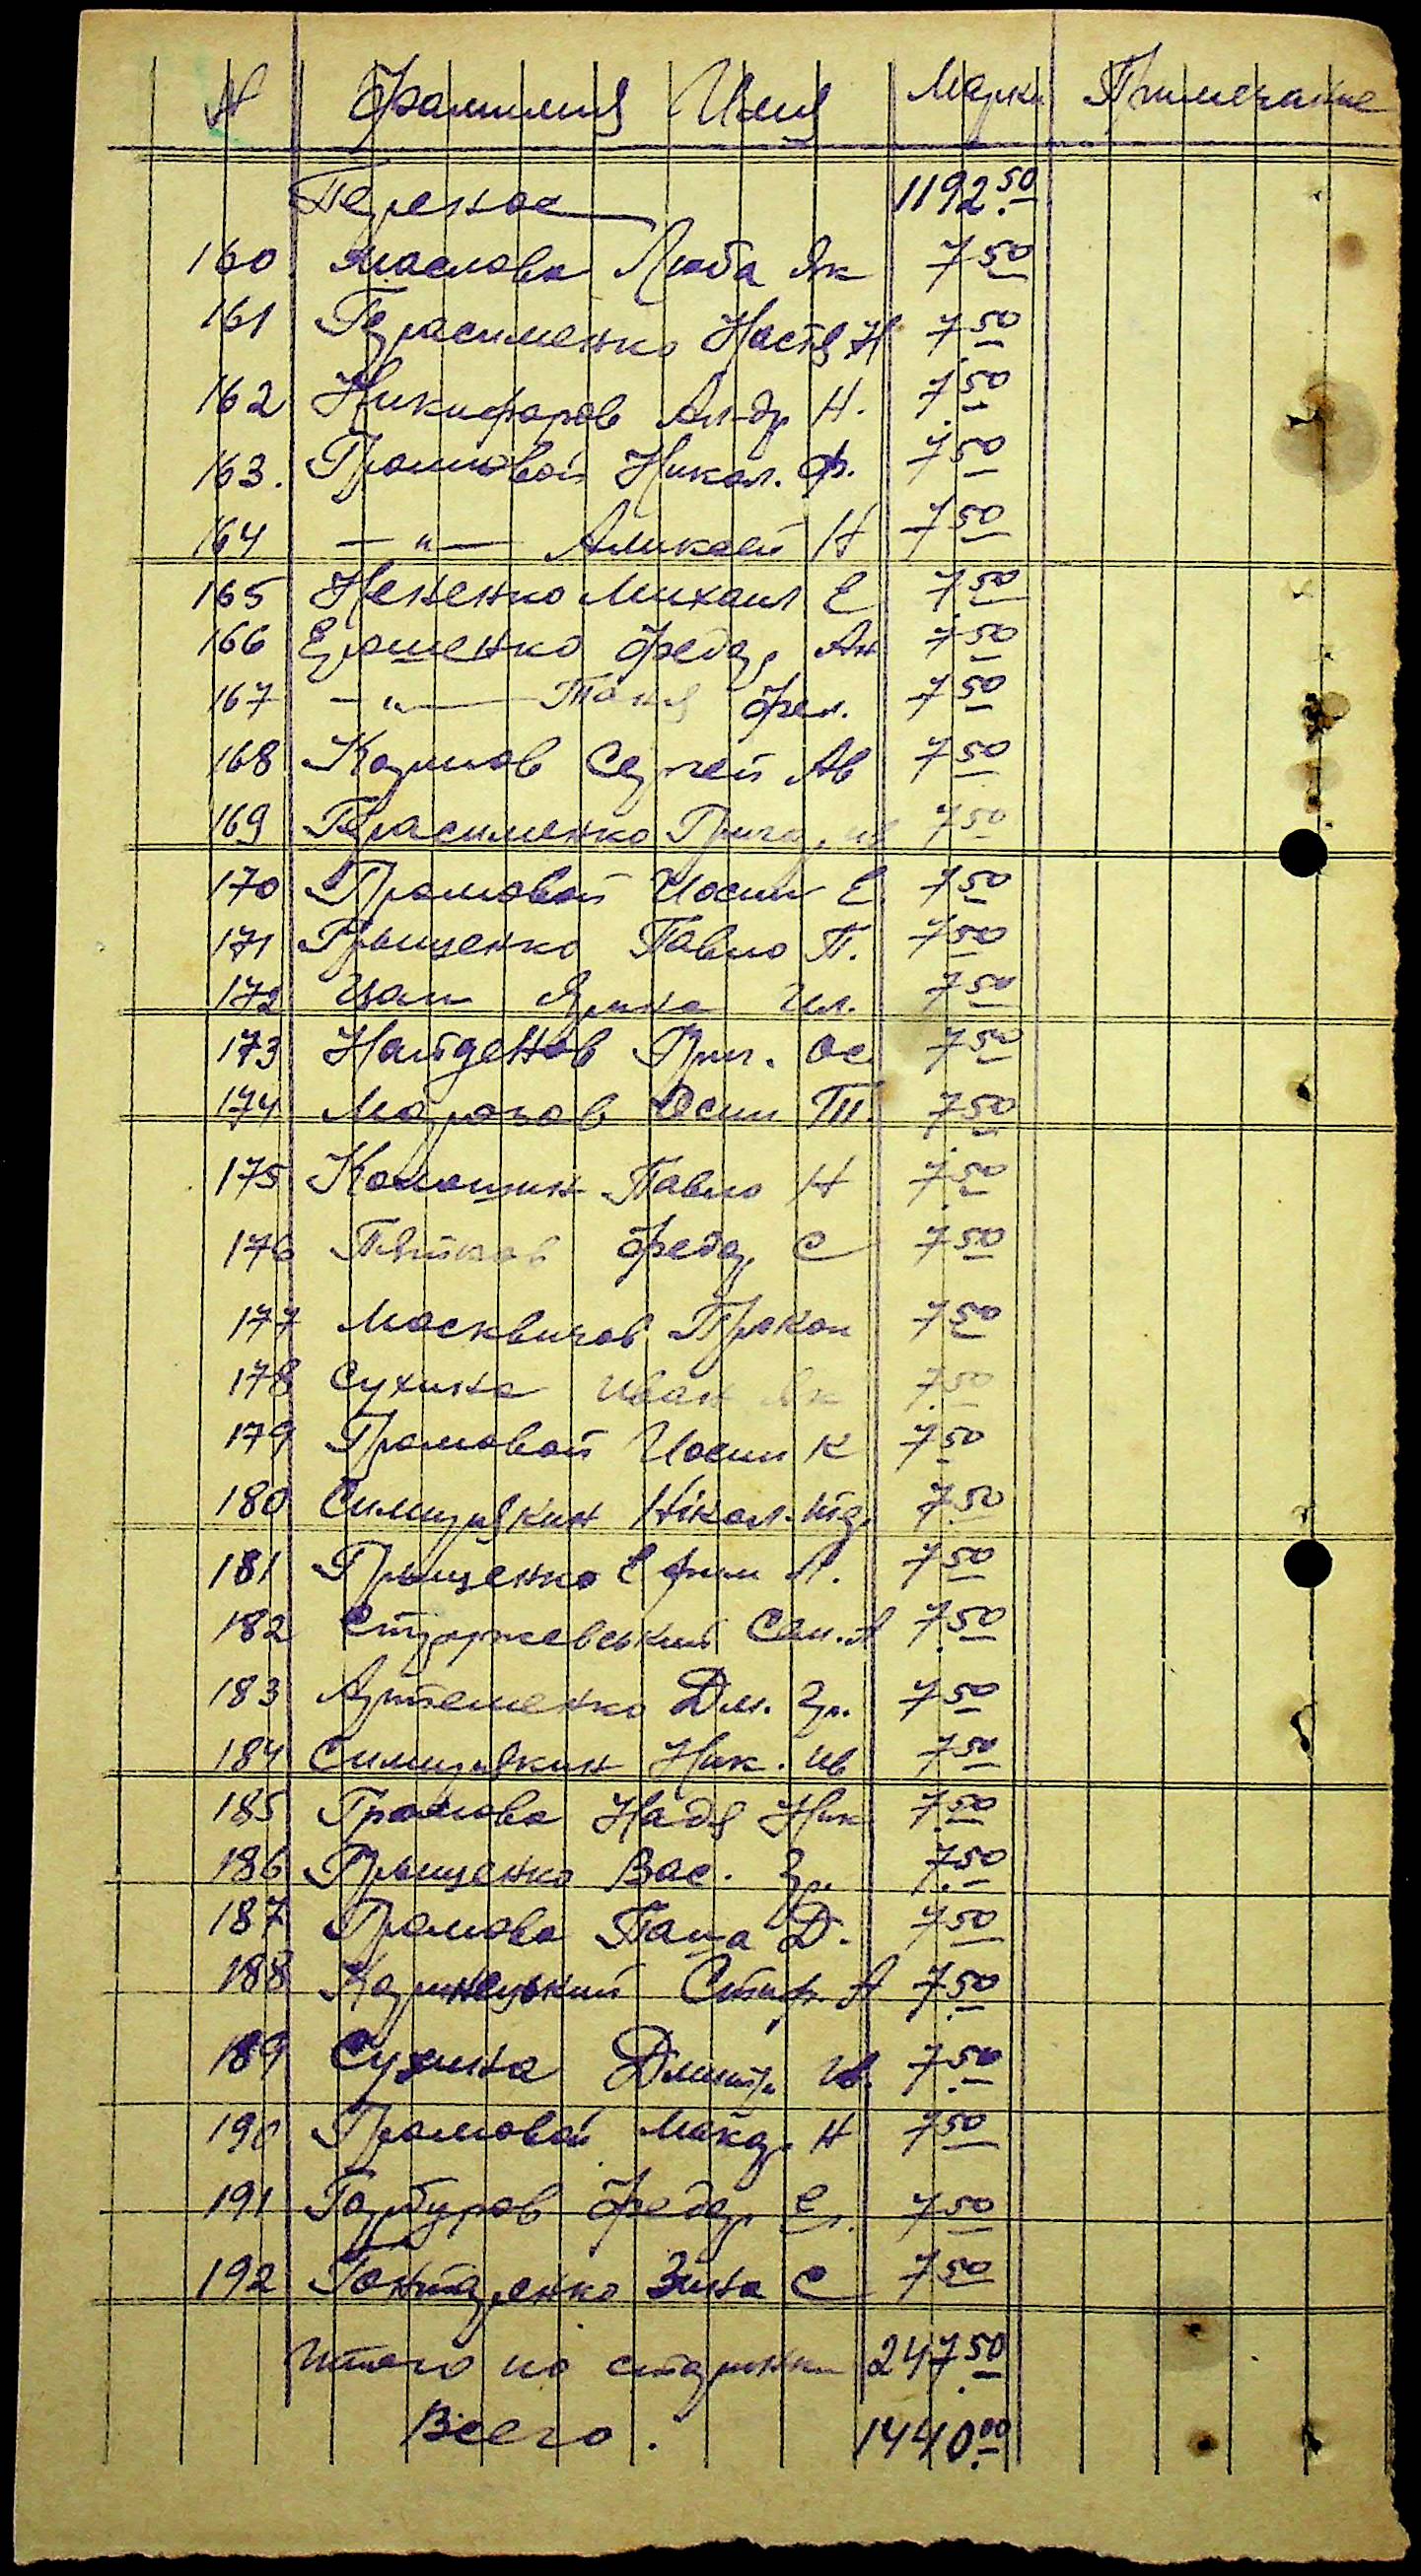 № Фамилия Имя Марки Примечание
Перенос 1192.50
160 Маслова Люба Як 7 50
161 Герасименко Настя Н 7 50
162 Никифоров Ал-др Н. 7 50
163. Громовой Никол. Ф. 7 50
164 — " — Аликсей Н 7 50
165 Нененко Михаил Е 7 50
166 Ерошенко Федор Ан 7 50
167 — " — Таня Фед. 7 50
168 Каримов Сергей Ав 7 50
169 Герасименко Григор. ив 7 50
170 Громовой Иосип Е 7 50
171 Грыценко Павло П. 7 50
172 Цап Ил. 7 50
173 Найденов Григ. Ос 7 50
174 Морозов Осип Т. 7 50
175 Колошин Павло Н 7 50
176 Федор С 7 50
177 Москвичов Прокоп 7 50
178 Сухина Иван Як 7 50
179 Громовой Иосип К 7 50
180 Нікол. 7 50
181 Грыценко Ефим Л. 7 50
182 Сем. А 7 50
183 Артеменко Дм. Гр. 7 50
184 Ник. ив 7 50
185 Громова Надя Ник 7 50
186 Грыценко Вас. Гр. 7 50
187 Громова Паша Д. 7 50
188 А 7 50
189 Сухина Дмитр. Ив. 7 50
190 Громовой Макар. Н 7 50
191 Горбуров Федор. Ег. 7 50
192 Гонтаренко Зина С 7 50
Итого по старинки 247.50
Всего. 1440.00